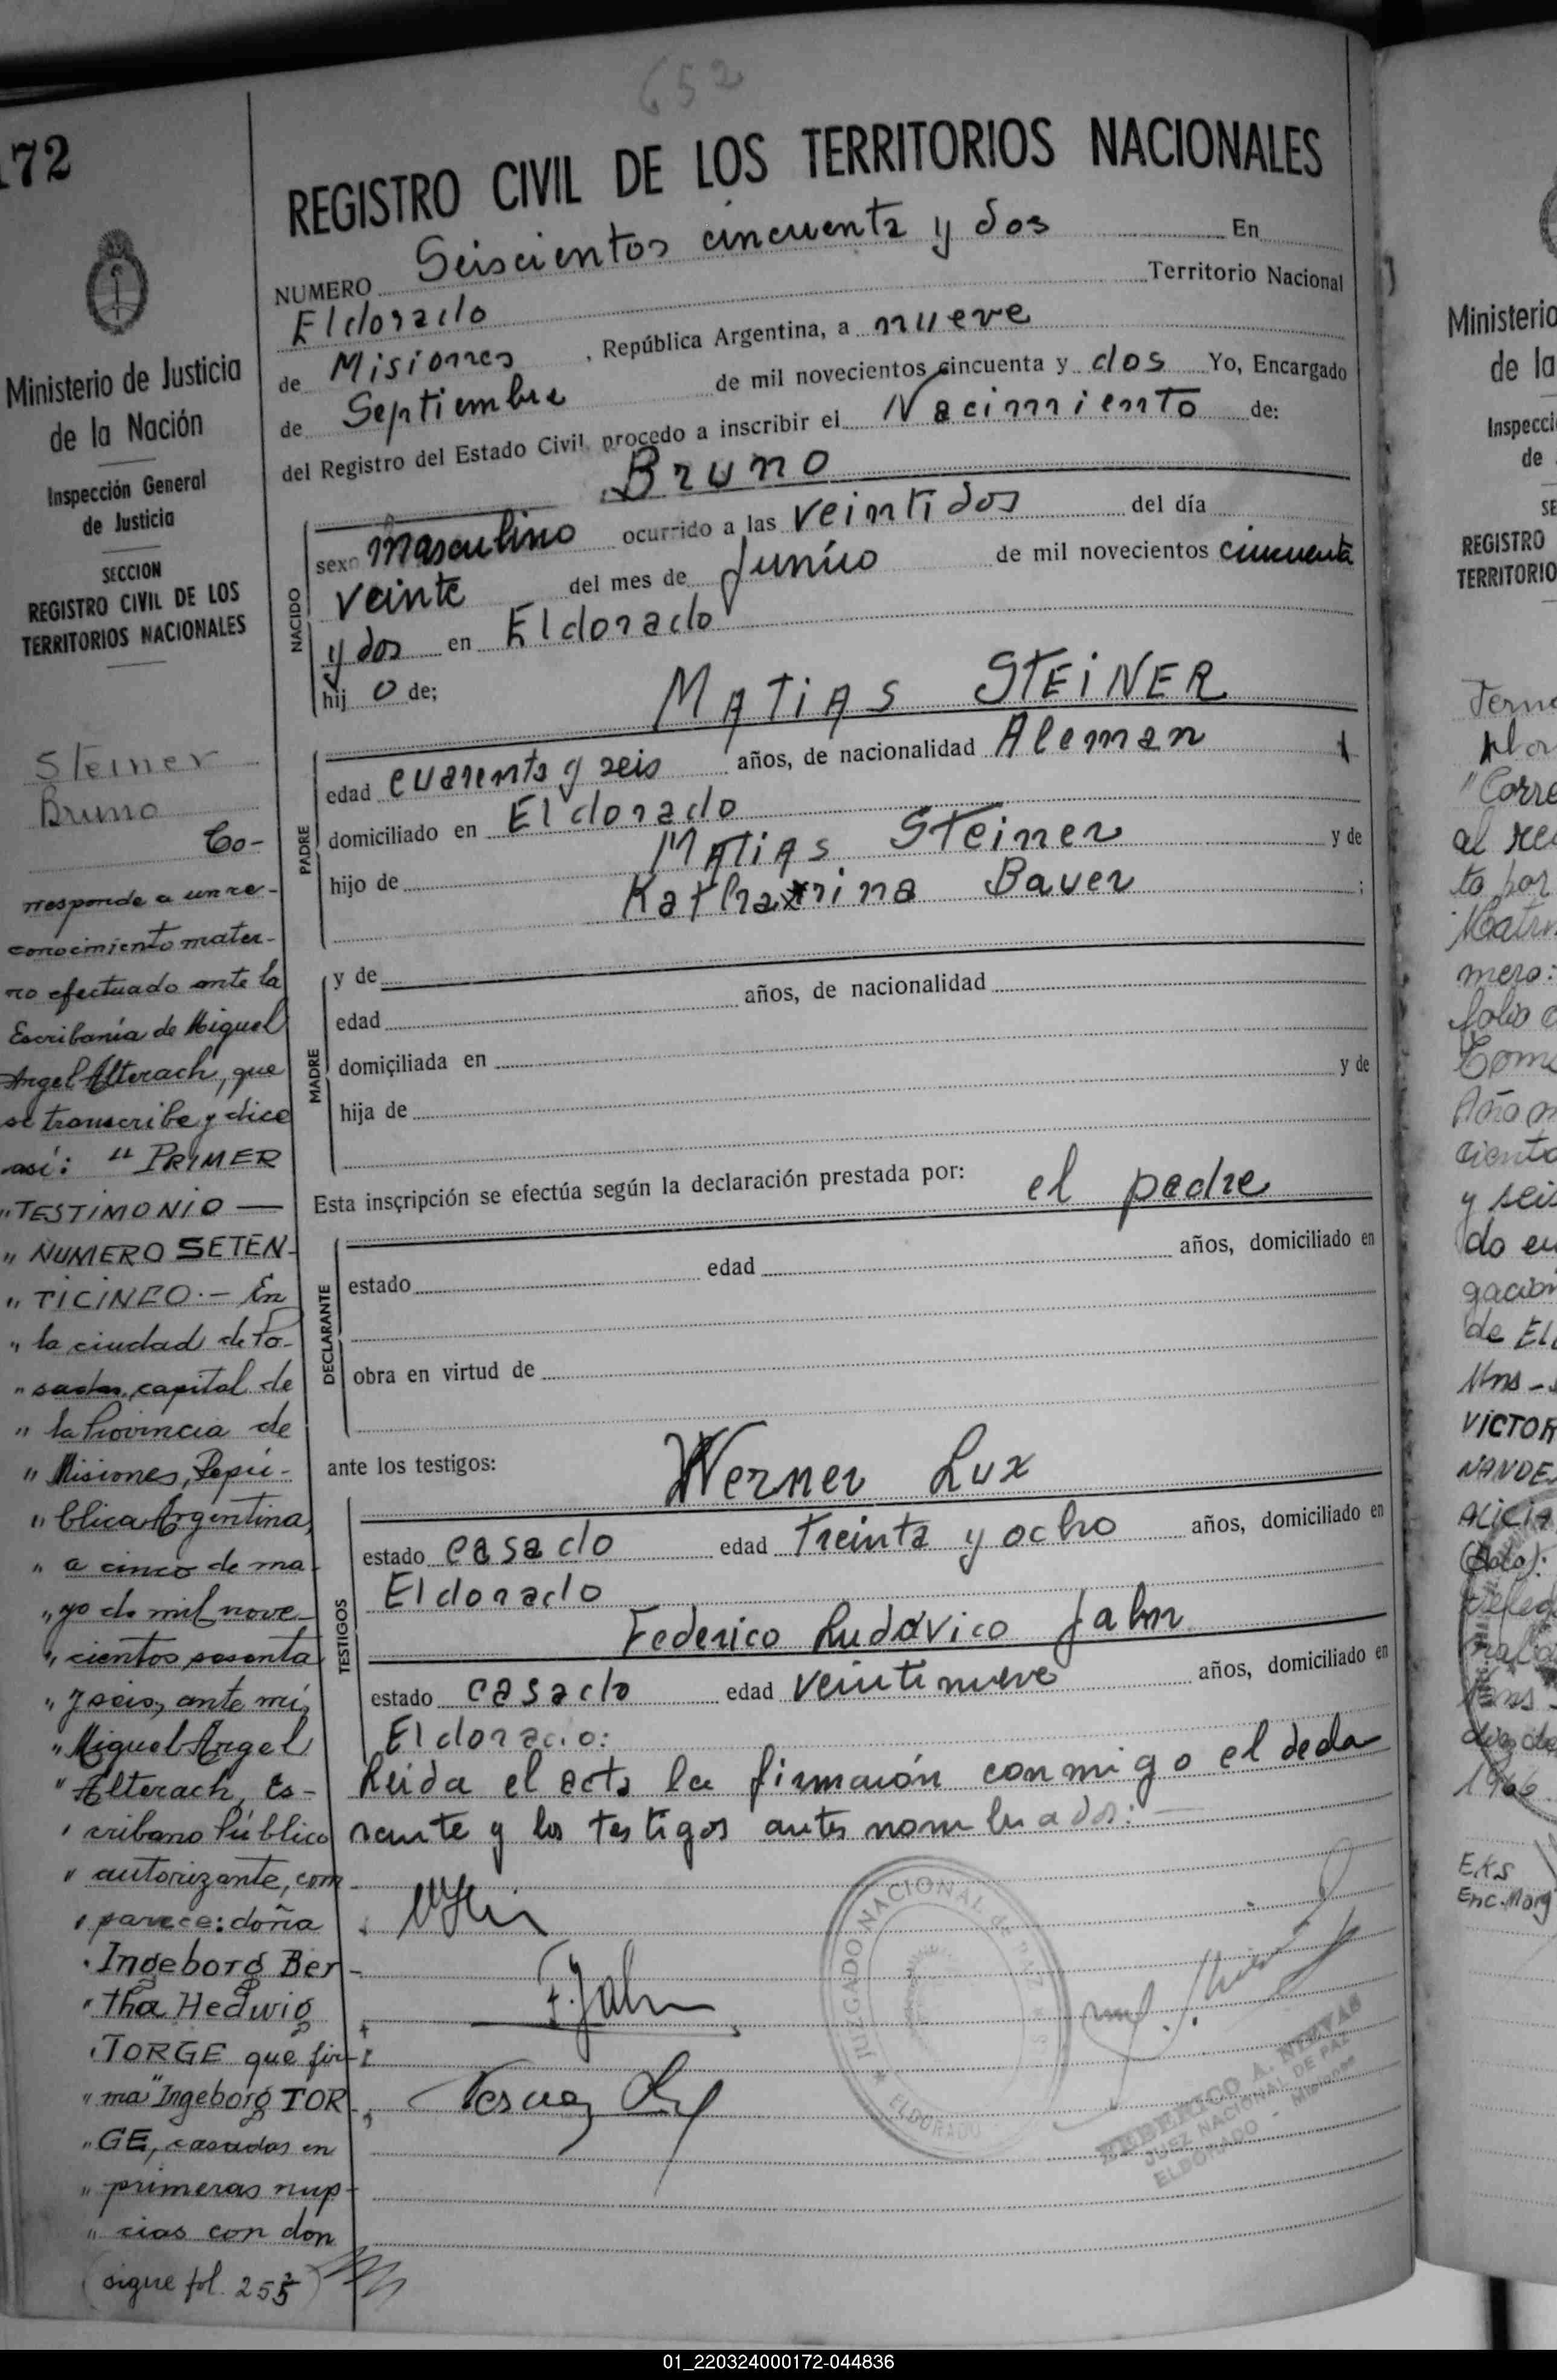 652
172
REGISTRO CIVIL DE LOS TERRITORIOS NACIONALES
NUMERO Seiscientos cincuenta y dos En
Eldorado Territorio Nacional
de Misiones , República Argentina, a nueve
de Septiembre de mil novecientos cincuenta y dos Yo, Encargado
del Registro del Estado Civil, procedo a inscribir el Nacimiento de:
Bruno
NACIDO
sexo masculino ocurrido a las veintidos del día
veinte del mes de Junio de mil novecientos cincuenta
y dos en Eldorado
hij o de;
MATIAS STEINER
PADRE
edad cuarenta y seis años, de nacionalidad Aleman
domiciliado en Eldorado
hijo de Matias Steiner y de
Katharina Bauer ;
MADRE
y de
edad años, de nacionalidad
domiciliada en
hija de y de
Esta inscripción se efectúa según la declaración prestada por: el padre
DECLARANTE
estado edad años, domiciliado en
obra en virtud de
ante los testigos: Werner Lux
TESTIGOS
estado casado edad treinta y ocho años, domiciliado en
Eldorado
Federico Ludovico Jahn
estado casado edad veintinueve años, domiciliado en
Eldorado:
Leida el acta la firmarón conmigo el decla
rante y los testigos antes nombrados:
F. Jahn
JUZGADO NACIONAL de PAZ
ELDORADO
FEDERICO A.
JUEZ NACIONAL DE PAZ
ELDORADO - Misiones
Ministerio de Justicia
de la Nación
Inspección General
de Justicia
SECCION
REGISTRO CIVIL DE LOS
TERRITORIOS NACIONALES
Steiner
Bruno
Co-
rresponde a un re-
conocimiento mater-
no efectuado ante la
Escribanía de Miguel
Angel Alterach, que
se transcribe y dice
así: " PRIMER
" TESTIMONIO —
" NUMERO SETEN-
" TICINCO.- En
" la ciudad de Po-
" sadas, capital de
" la Provincia de
" Misiones, Repú-
" blica Argentina,
" a cinco de ma-
" yo de mil nove-
" cientos sesenta
" y seis, ante mí,
" Miguel Angel
" Alterach, Es-
" cribano Público
" autorizante, com-
" parece: doña
" Ingeborg Ber-
" tha Hedwig
" TORGE que fir-
" ma "Ingeborg TOR-
" GE, casadas en
" primeras nup-
" cias con don
(sigue fol. 255)
Ministerio
de la
Inspecci
de
SE
REGISTRO
TERRITORIO
"Corre
al rec
to por
Matri
mero:
folio
Tomo
Año m
ciento
y seis
do en
gación
de EL
Mns -
VICTOR
NANDE
ALICIA
1966
EKS
Enc. Marg
01_220324000172-044836